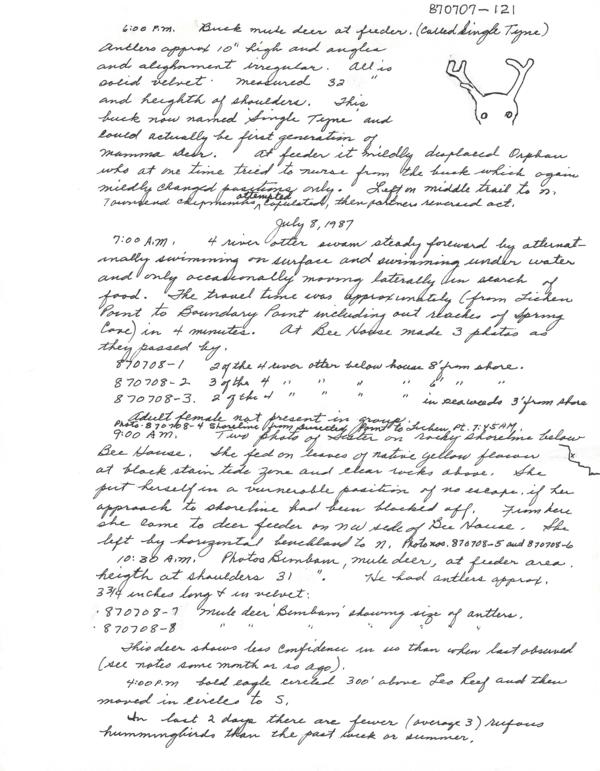 870707-121
6:00 P.M. Buck mule deer at feeder. (Called Single Tyne)
Antlers approx 10" high and angles
and alighnment irregular. All is
solid velvet. measured 32 "
and heighth of shoulders. This
buck now named Single Tyne and
could actually be first generation of
Mamma Deer. At feeder it mildly displaced Orphan
who at one time tried to nurse from the buck which again
mildly changed positions only. Left on middle trail to N.
Townsend chipmunks attempted copulated, then partners reversed act.
July 8, 1987
7:00 A.M. 4 river otter swam steady foreward by alternat-
inally swimming on surface and swimming under water
and only occasionally moving laterally in search of
food. The travel time was approximately (from Lichen
Point to Boundary Point including out reaches of Spring
Cove) in 4 minutes. At Bee House made 3 photos as
they passed by.
870708-1 2 of the 4 river otter below house 8' from shore.
870708-2 3 of the 4 " " " " 6' " "
870708-3. 2 of the 4 " " " " in seaweeds 3' from shore
Adult female not present in group.
Photo-870708-4 Shoreline from Point to Lichen Pt. 7:45 AM.
9:00 A.M. Two photo of Sister on rocky shoreline below
Bee House. She fed on leaves of native yellow flower
at black stain tide zone and clear rocks above. She
put herself in a vurnerable position of no escape, if her
approach to shoreline had been blocked off. From here
she came to deer feeder on NW side of Bee House. She
left by horizontal benchland to N. Photo nos. 870708-5 and 870708-6
10:30 A.M. Photos Bimbam, mule deer, at feeder area.
heigth at shoulders 31 ". He had antlers approx.
3 3/4 inches long & in velvet.
· 870708-7 mule deer 'Bimbam' showing size of antlers.
· 870708-8 " " " " "
This deer shows less confidence in us than when last observed
(see notes some month or so ago).
4:00 P.M bald eagle circled 300' above Leo Reef and then
moved in circles to S.
In last 2 days there are fewer (average 3) rufous
hummingbirds than the past week or summer.